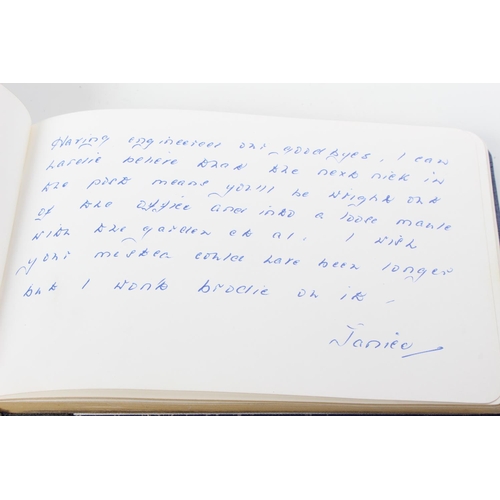 Having engineered our goodbyes, I can
hardie believe that the next in
the port means you'll be wright out
of the office and into a loose
with the garden et al. I wish
your could have been longer
but I won't brodie on it.
Janice